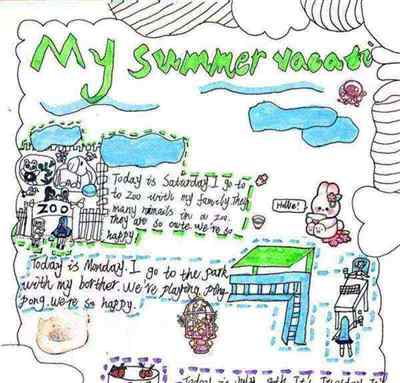 My summer vacati
Today is Saturday.I go to
to zoo with my family.They
many in a zoo.
They are so cute. we're so
happy
ZOO
Hello!
Today is Monday. I go to the park
with my borther. We're playing ping-
pong. we're so happy.
Today is July 9th. It's Tuesday.